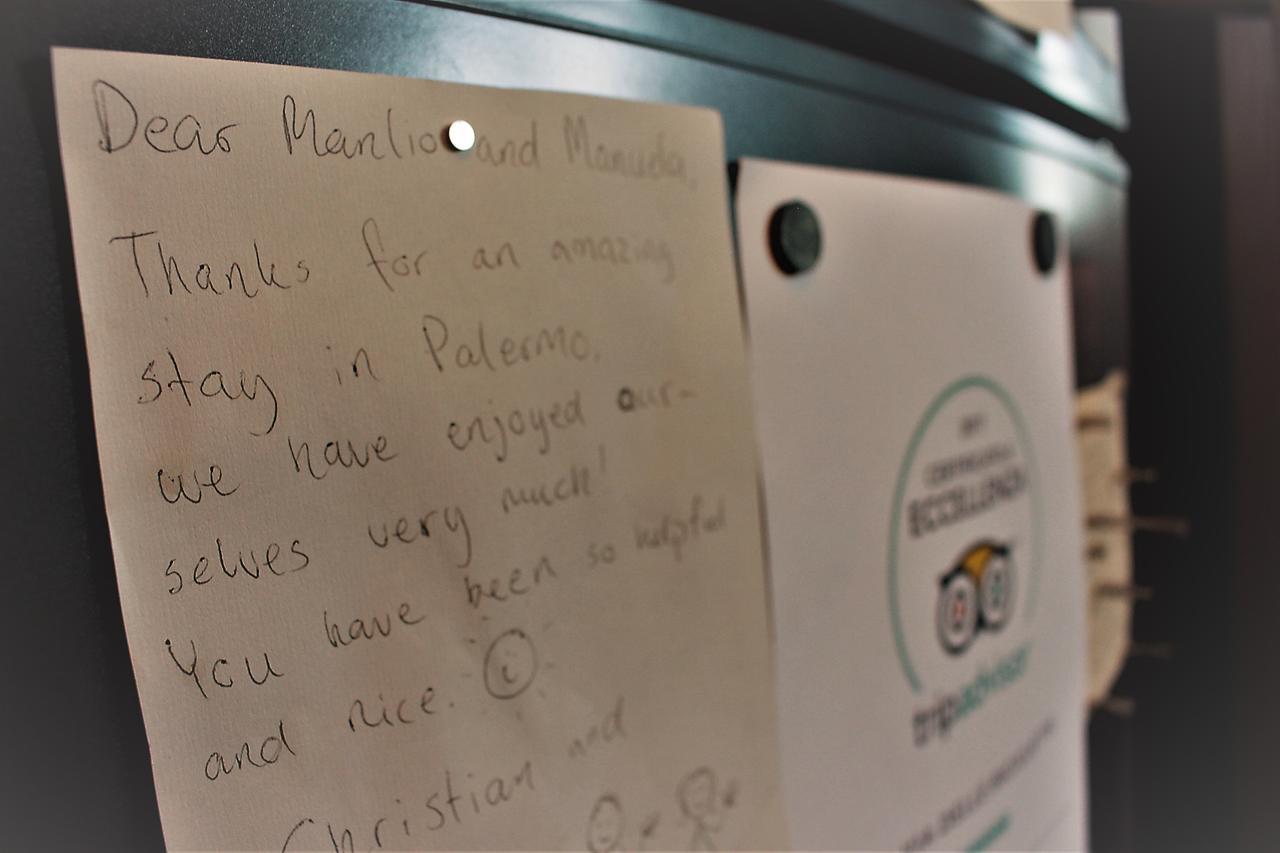 Dear Manlio and Manuela,
Thanks for an amazing
stay in Palermo.
we have enjoyed our-
selves very much!
You have been so helpful
and nice.
Christian and
ECCELLENZA
tripadvisor